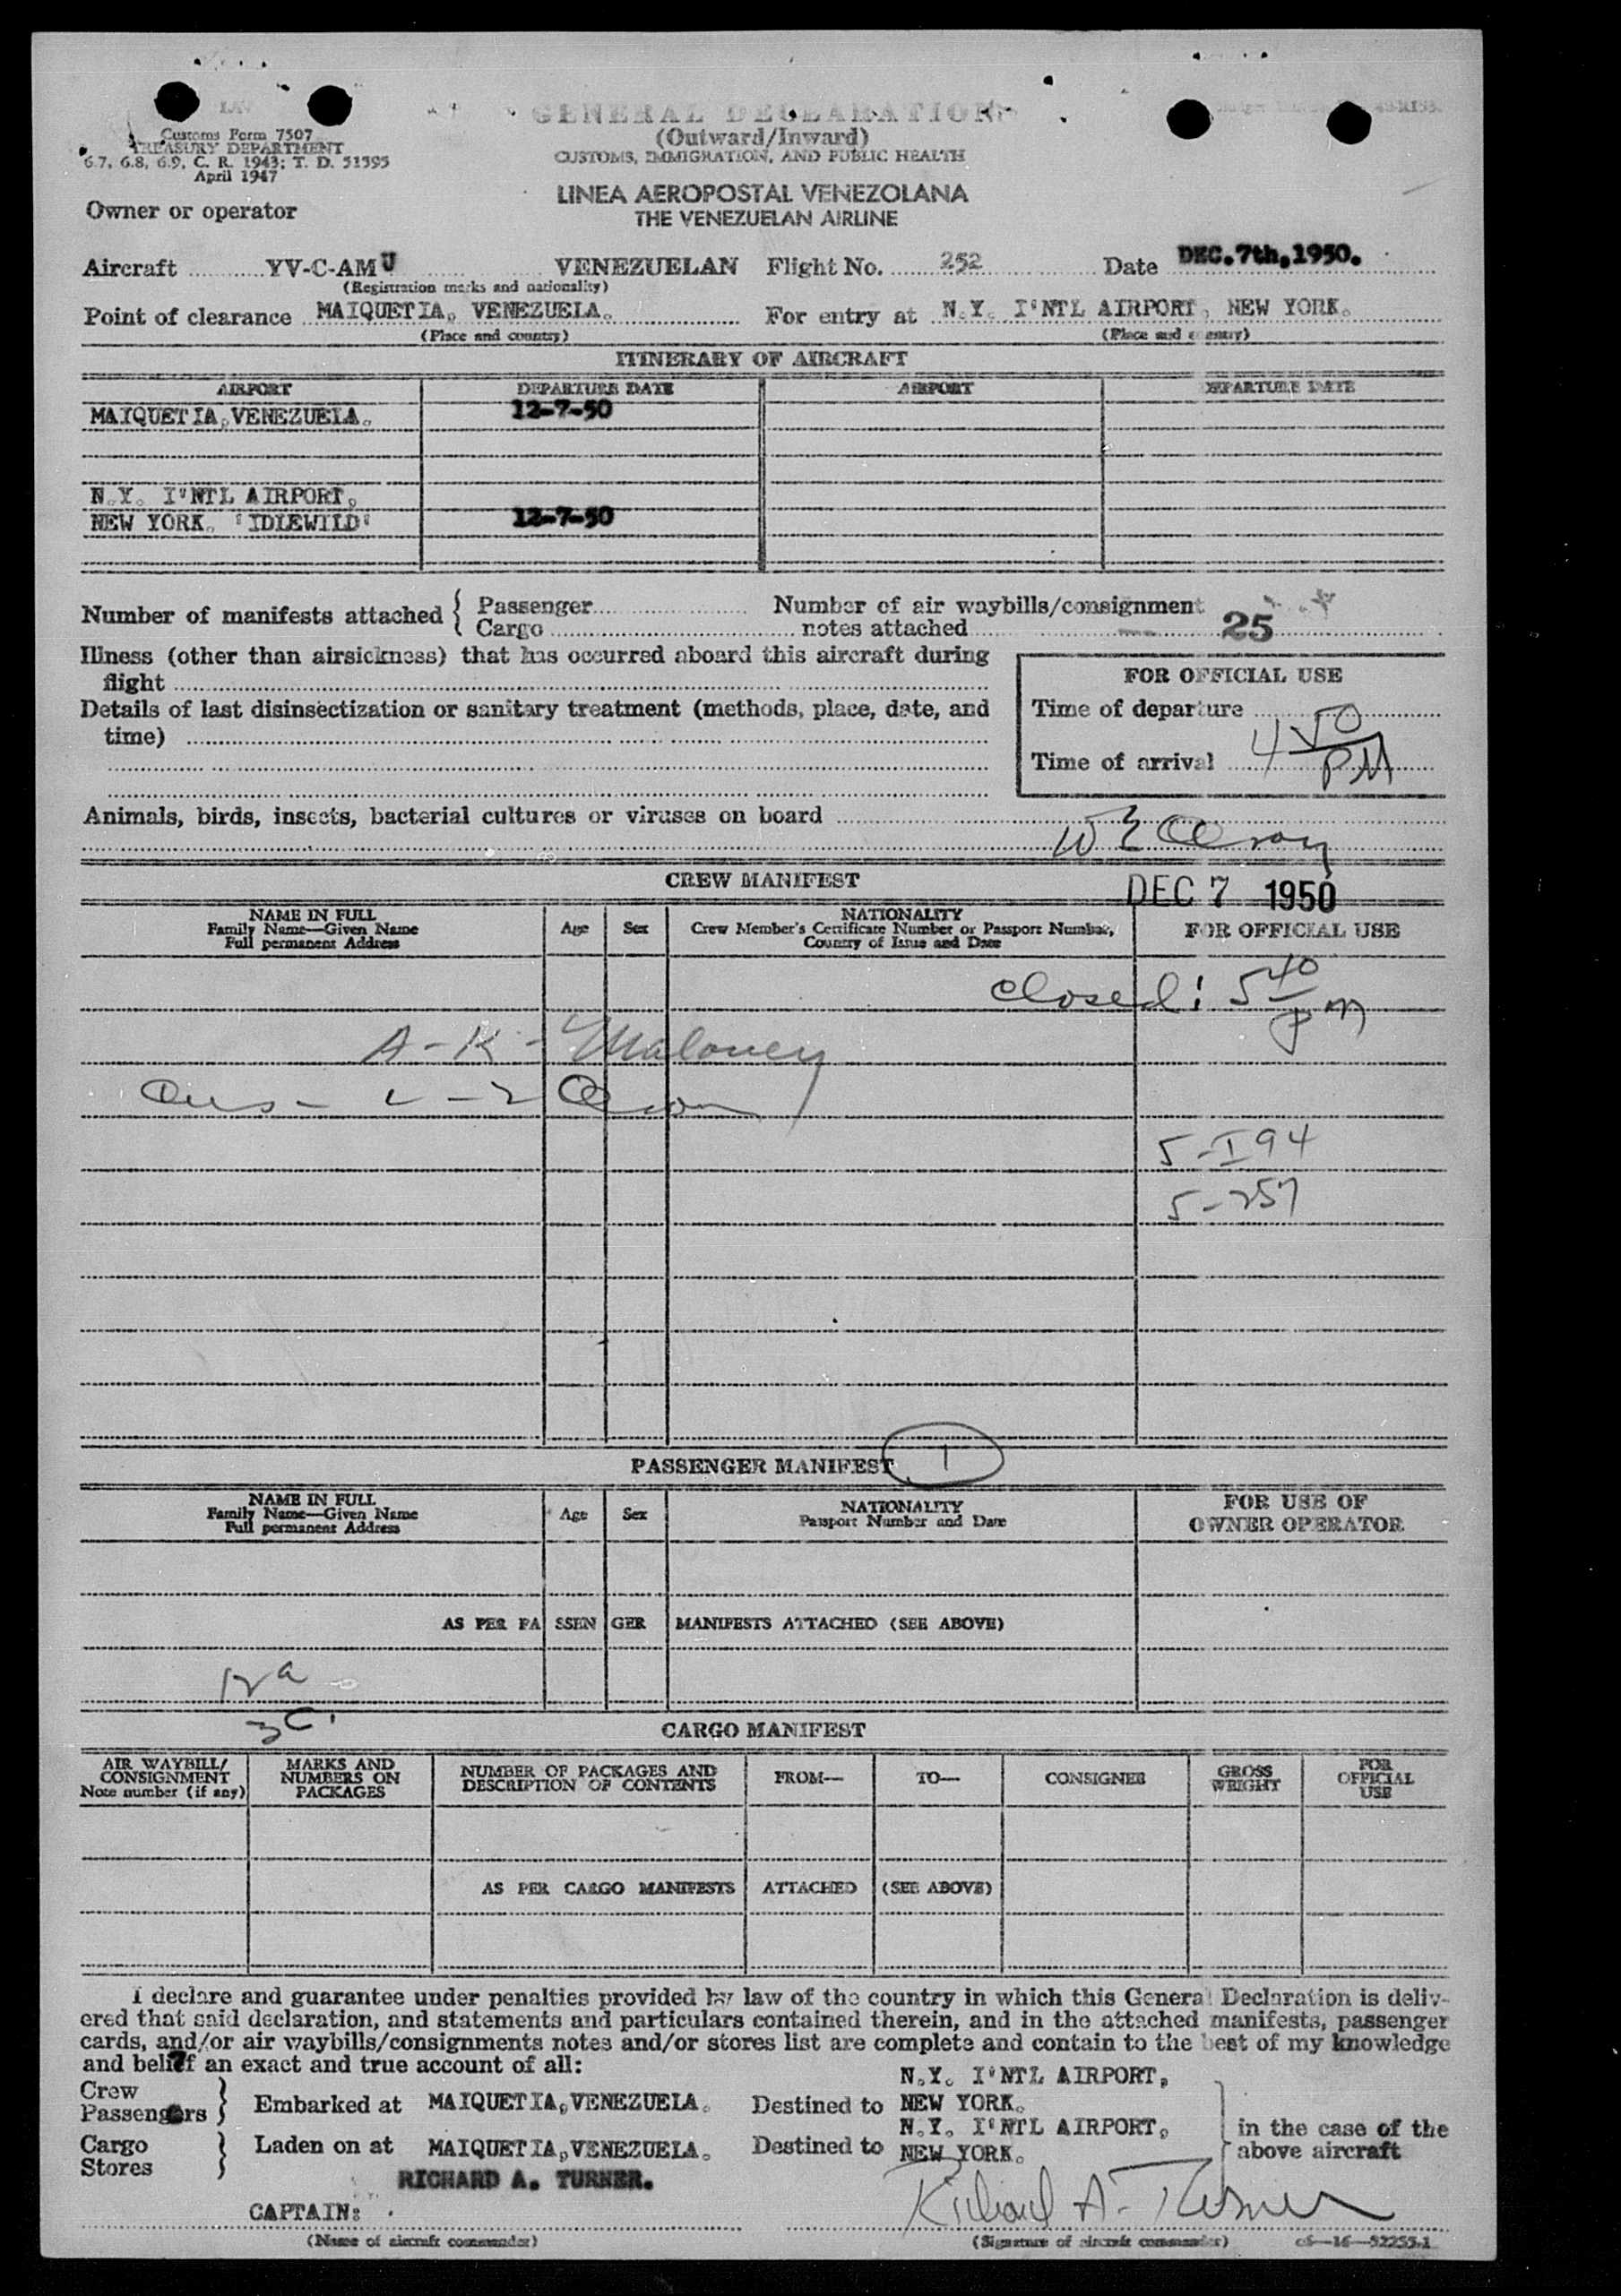 GENERAL DECLARATION
(Outward/Inward)
CUSTOMS, IMMIGRATION, AND PUBLIC HEALTH
Customs Form 7507
TREASURY DEPARTMENT
6.7, 6.8, 6.9, C. R. 1943; T. D. 51595
April 1947
LINEA AEROPOSTAL VENEZOLANA
THE VENEZUELAN AIRLINE
Owner or operator
Aircraft YV-C-AMU VENEZUELAN Flight No. 252 Date DEC.7th,1950.
(Registration marks and nationality)
Point of clearance MAIQUETIA, VENEZUELA. For entry at N.Y. I'NTL AIRPORT, NEW YORK.
(Place and country) (Place and country)
ITINERARY OF AIRCRAFT
AIRPORT DEPARTURE DATE AIRPORT DEPARTURE DATE
MAIQUETIA,VENEZUELA. 12-7-50
N.Y. I'NTL AIRPORT,
NEW YORK. 'IDLEWILD' 12-7-50
Number of manifests attached { Passenger Number of air waybills/consignment
Cargo notes attached 25
Illness (other than airsickness) that has occurred aboard this aircraft during
flight
FOR OFFICIAL USE
Details of last disinsectization or sanitary treatment (methods, place, date, and
time)
Time of departure
Time of arrival 4 50 PM
Animals, birds, insects, bacterial cultures or viruses on board
CREW MANIFEST DEC 7 1950
NAME IN FULL
Family Name—Given Name
Full permanent Address
Age Sex
NATIONALITY
Crew Member's Certificate Number or Passport Number,
Country of Issue and Date
FOR OFFICIAL USE
closed: 5 40 pm
A-K- Maloney
5-I94
5-257
PASSENGER MANIFEST 1
NAME IN FULL
Family Name—Given Name
Full permanent Address
Age Sex
NATIONALITY
Passport Number and Date
FOR USE OF
OWNER OPERATOR
AS PER PASSENGER MANIFESTS ATTACHED (SEE ABOVE)
12 a
3 C.
CARGO MANIFEST
AIR WAYBILL/
CONSIGNMENT
Note number (if any)
MARKS AND
NUMBERS ON
PACKAGES
NUMBER OF PACKAGES AND
DESCRIPTION OF CONTENTS
FROM—
TO—
CONSIGNEE
GROSS
WEIGHT
FOR
OFFICIAL
USE
AS PER CARGO MANIFESTS ATTACHED (SEE ABOVE)
I declare and guarantee under penalties provided by law of the country in which this General Declaration is deliv-
ered that said declaration, and statements and particulars contained therein, and in the attached manifests, passenger
cards, and/or air waybills/consignments notes and/or stores list are complete and contain to the best of my knowledge
and belief an exact and true account of all:
Crew
Passengers } Embarked at MAIQUETIA,VENEZUELA. Destined to N.Y. I'NTL AIRPORT,
NEW YORK.
Cargo
Stores } Laden on at MAIQUETIA,VENEZUELA. Destined to N.Y. I'NTL AIRPORT,
NEW YORK.
} in the case of the
above aircraft
RICHARD A. TURNER.
CAPTAIN: Richard A. Turner
(Name of aircraft commander) (Signature of aircraft commander) c6—16—52255-1